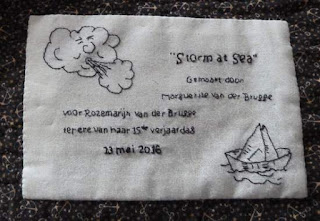 "Storm at Sea"
Gemaakt door
Marguerite van der Brugge
voor Rozemarijn van der Brugge
ter ere van haar 15de verjaardag
23 mei 2016